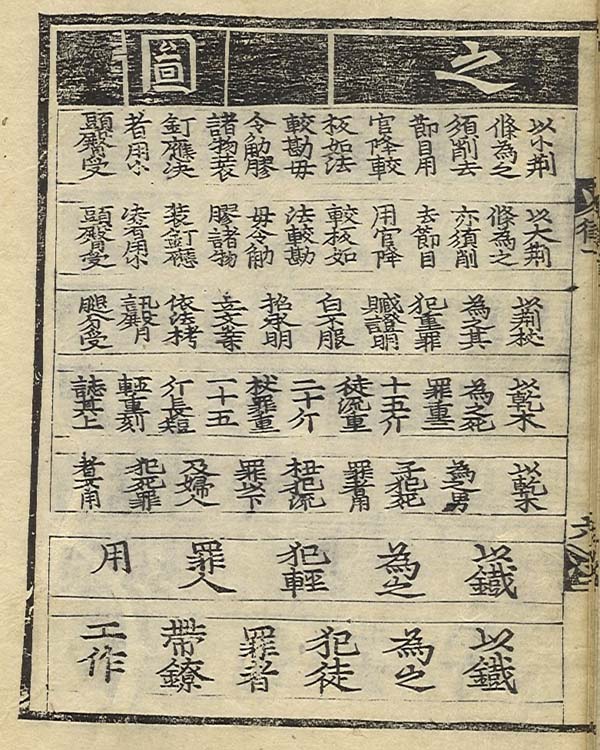 之圖
以小荊
條為之
須削去
節目用
官降較
板如法
較勘毋
令觔膠
諸物裝
釘應决
者用小
頭臀受
以大荊
條為之
亦須削
去節目
用官降
較板如
法較勘
毋令觔
膠諸物
裝釘應
决者用小
頭臀受
以荊杖
為之其
犯重罪
贓證明
白不服
招承明
立文案
依法栲
訊臀
腿分受
以乾木
為之死
罪重二
十五斤
徒流重
二十斤
杖罪重
一十五
斤長短
輕重刻
誌其上
以乾木
為之男
子犯死
罪者用
杻犯流
罪以下
及婦人
犯死罪
者不用
以鐵
為之
犯輕
罪人
用
以鐵
為之
犯徒
罪者
帶鐐
工作
律一
六